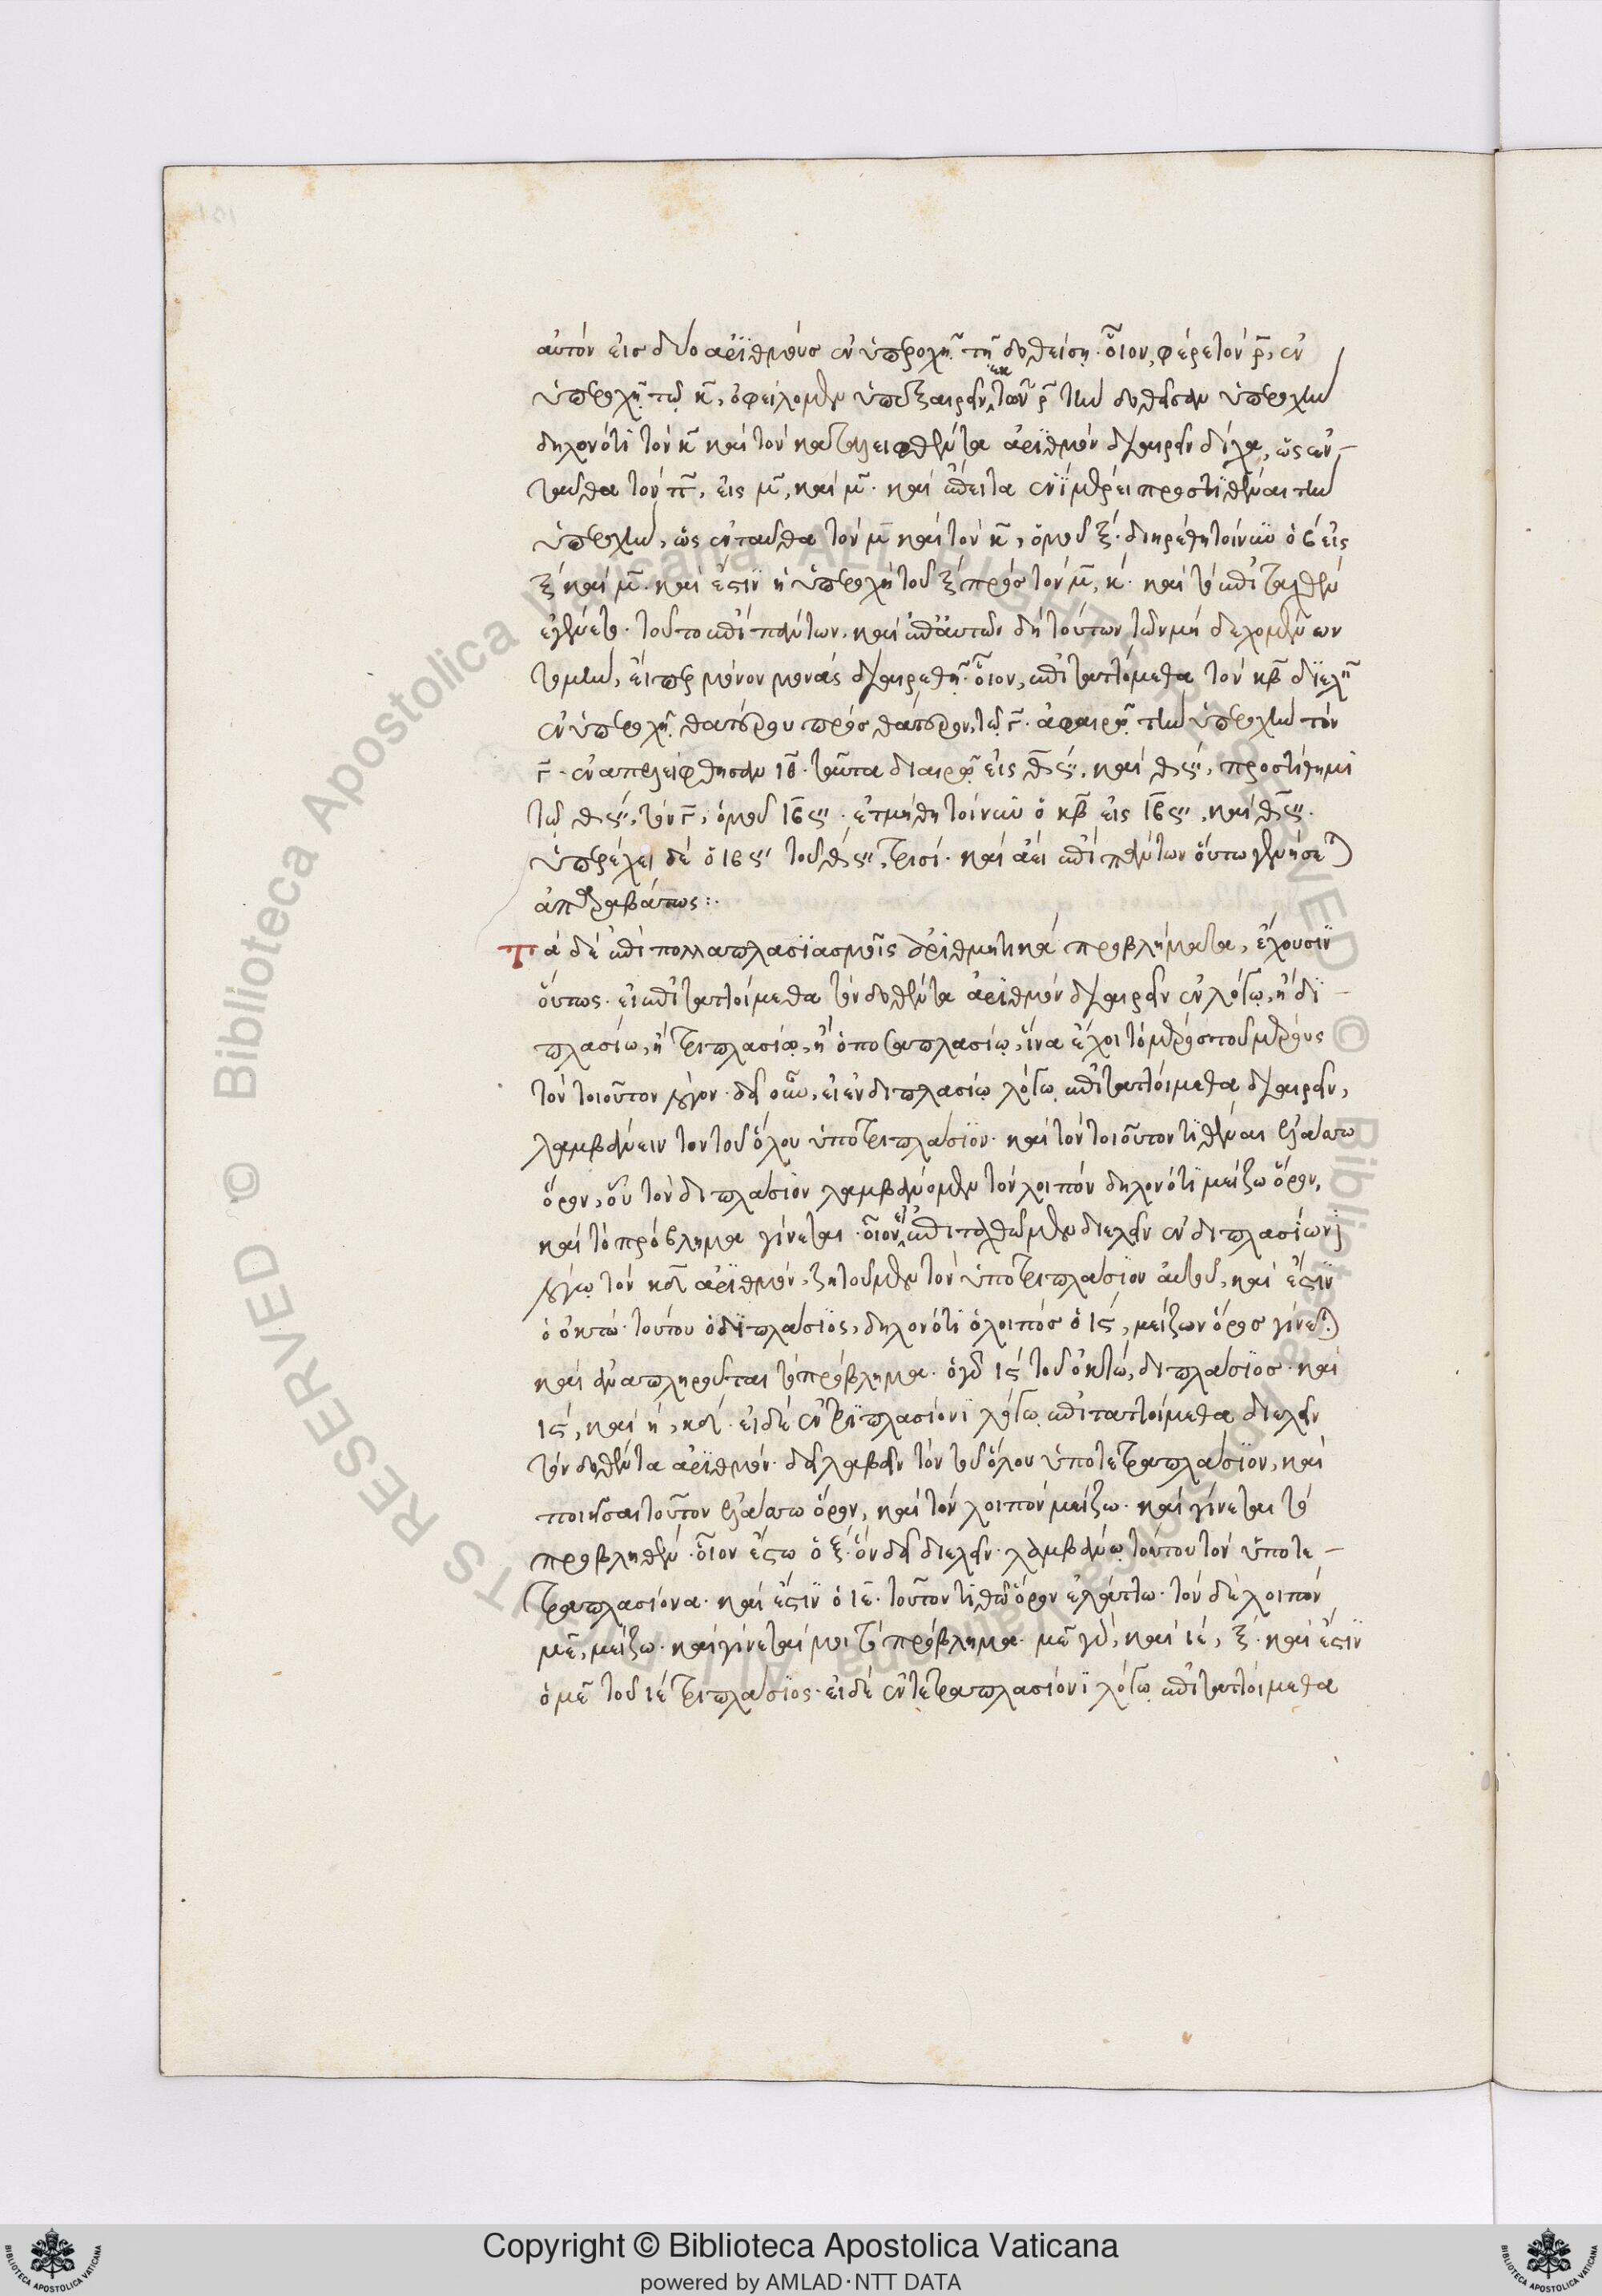 αὐτόν εἰς δύο ἀρϊθμοὺς ἐν ὑπεροχῇ τῇ δοθείσῃ. οἷον, φέρε τὸν ρ̅, ἐν
ὑπεροχῇ τῷ κ̅, ὀφείλομεν ὑπεξαιρεῖν ἐκ τῶν ρ̅ τὴν δοθεῖσαν ὑπεροχὴν
δηλονότι τὸν κ̅ καὶ τὸν καταλειφθέντα ἀρϊθμὸν διαιρεῖν δίχα, ὡς ἐν
ταῦθα τὸν π̅, εἰς μ̅, καὶ μ̅. καὶ ἔπειτα ἑνὶ μέρει προστιθέναι τὴν
ὑπεροχὴν, ὡς ἐνταῦθα τὸν μ̅ καὶ τὸν κ̅, ὁμοῦ ξ. διῃρέθη τοίνυν ὁ ρ εἰς
ξ καὶ μ̅. καὶ ἔστιν ἡ ὑπεροχὴ τοῦ ξ πρὸς τὸν μ̅, κ. καὶ τὸ ἐπιταχθὲν
ἐγένετο. τοῦτο ἐπὶ πάντων. καὶ ἐπ' αὐτῶν δὴ τούτων τῶν μὴ δεχομένων
τομὴν, εἴπερ μόνον μονὰς διαιρεθῇ. οἷον, ἐπιταττόμεθα τὸν κβ̅ διελεῖν
ἐν ὑπεροχῇ θατέρου πρὸς θάτερον, τῷ γ̅. ἀφαιρῶ τὴν ὑπεροχὴν τὸν
γ̅. ἐναπελείφθησαν ιθ. ταῦτα διαιρῶ εἰς θ̅ς'', καὶ θς'', προστίθημι
τῷ θς'', τὸν γ̅, ὁμοῦ ιβ̅ς''. ἐτμήθη τοίνυν ὁ κβ̅ εἰς ιβ̅ς'', καὶ θ̅ς''.
ὑπερέχει δὲ ὁ ιβς'' τοῦ θς'', τρισί. καὶ ἀεὶ ἐπὶ πάντων οὕτω γενήσεται
ἀπαραβάτως:.
Τὰ δὲ ἐπὶ πολλαπλασϊασμοῖς ἀρϊθμητικὰ προβλήματα, ἔχουσιν
οὕτως. εἰ ἐπιταττοίμεθα τὸν δοθέντα ἀρϊθμὸν διαιρεῖν ἐν λόγῳ, ἢ δϊ
πλασίῳ, ἢ τριπλασίῳ, ἢ ὁποσαπλασίῳ, ἵνα ἔχοι τὸ μέρος τοῦ μέρους
τὸν τοιοῦτον λόγον. δεῖ οὖν, εἰ ἐν διπλασίῳ λόγῳ ἐπιταττοίμεθα διαιρεῖν,
λαμβάνειν τὸν τοῦ ὅλου ὑποτριπλάσιον. καὶ τὸν τοιοῦτον τιθέναι ἐλάττω
ὅρον, οὗ τὸν διπλάσιον λαμβάνομεν τὸν λοιπὸν δηλονότι μείζω ὅρον,
καὶ τὸ πρόβλημα γίνεται. οἷον εἰ ἐπεταχθημεν διελεῖν ἐν διπλασίωνι
λόγῳ τὸν κδ̅ ἀρϊθμὸν, ζητοῦμεν τὸν ὑποτριπλάσϊον αὐτοῦ, καὶ ἔστιν
ὁ ὀκτώ. τούτου ὁ διπλάσϊος, δηλονότι ὁ λοιπὸς ὁ ις, μείζων ὅρος γίνεται
καὶ ἀναπληροῦται τὸ πρόβλημα. ὁ γὰρ ις τοῦ ὀκτὼ, διπλάσϊος. καὶ
ις, καὶ η, κδ. εἰ δὲ ἐν τριπλασίονι λόγῳ ἐπιταττοίμεθα διελεῖν
τὸν δοθέντα ἀρϊθμὸν. δεῖ λαβεῖν τὸν τοῦ ὅλου ὑποτετραπλάσϊον, καὶ
ποιῆσαι τοῦτον ἐλάττω ὅρον, καὶ τὸν λοιπὸν μείζω. καὶ γίνεται τὸ
προβληθέν. οἷον ἔστω ὁ ξ. ὃν δεῖ διελεῖν. λαμβάνω τούτου τὸν ὑποτε
τραπλασίονα. καὶ ἔστιν ὁ ιε. τοῦτον τιθῶ ὅρον ἐλάττω. τὸν δὲ λοιπὸν
με̅, μείζω. καὶ γίνεταί μοι τὸ πρόβλημα. με̅ γὰρ, καὶ ιε, ξ. καὶ ἔστιν
ὁ με̅ τοῦ ιε τριπλάσϊος. εἰ δὲ ἐν τετραπλασίονι λόγῳ ἐπιταττοίμεθα
Copyright © Biblioteca Apostolica Vaticana
powered by AMLAD·NTT DATA